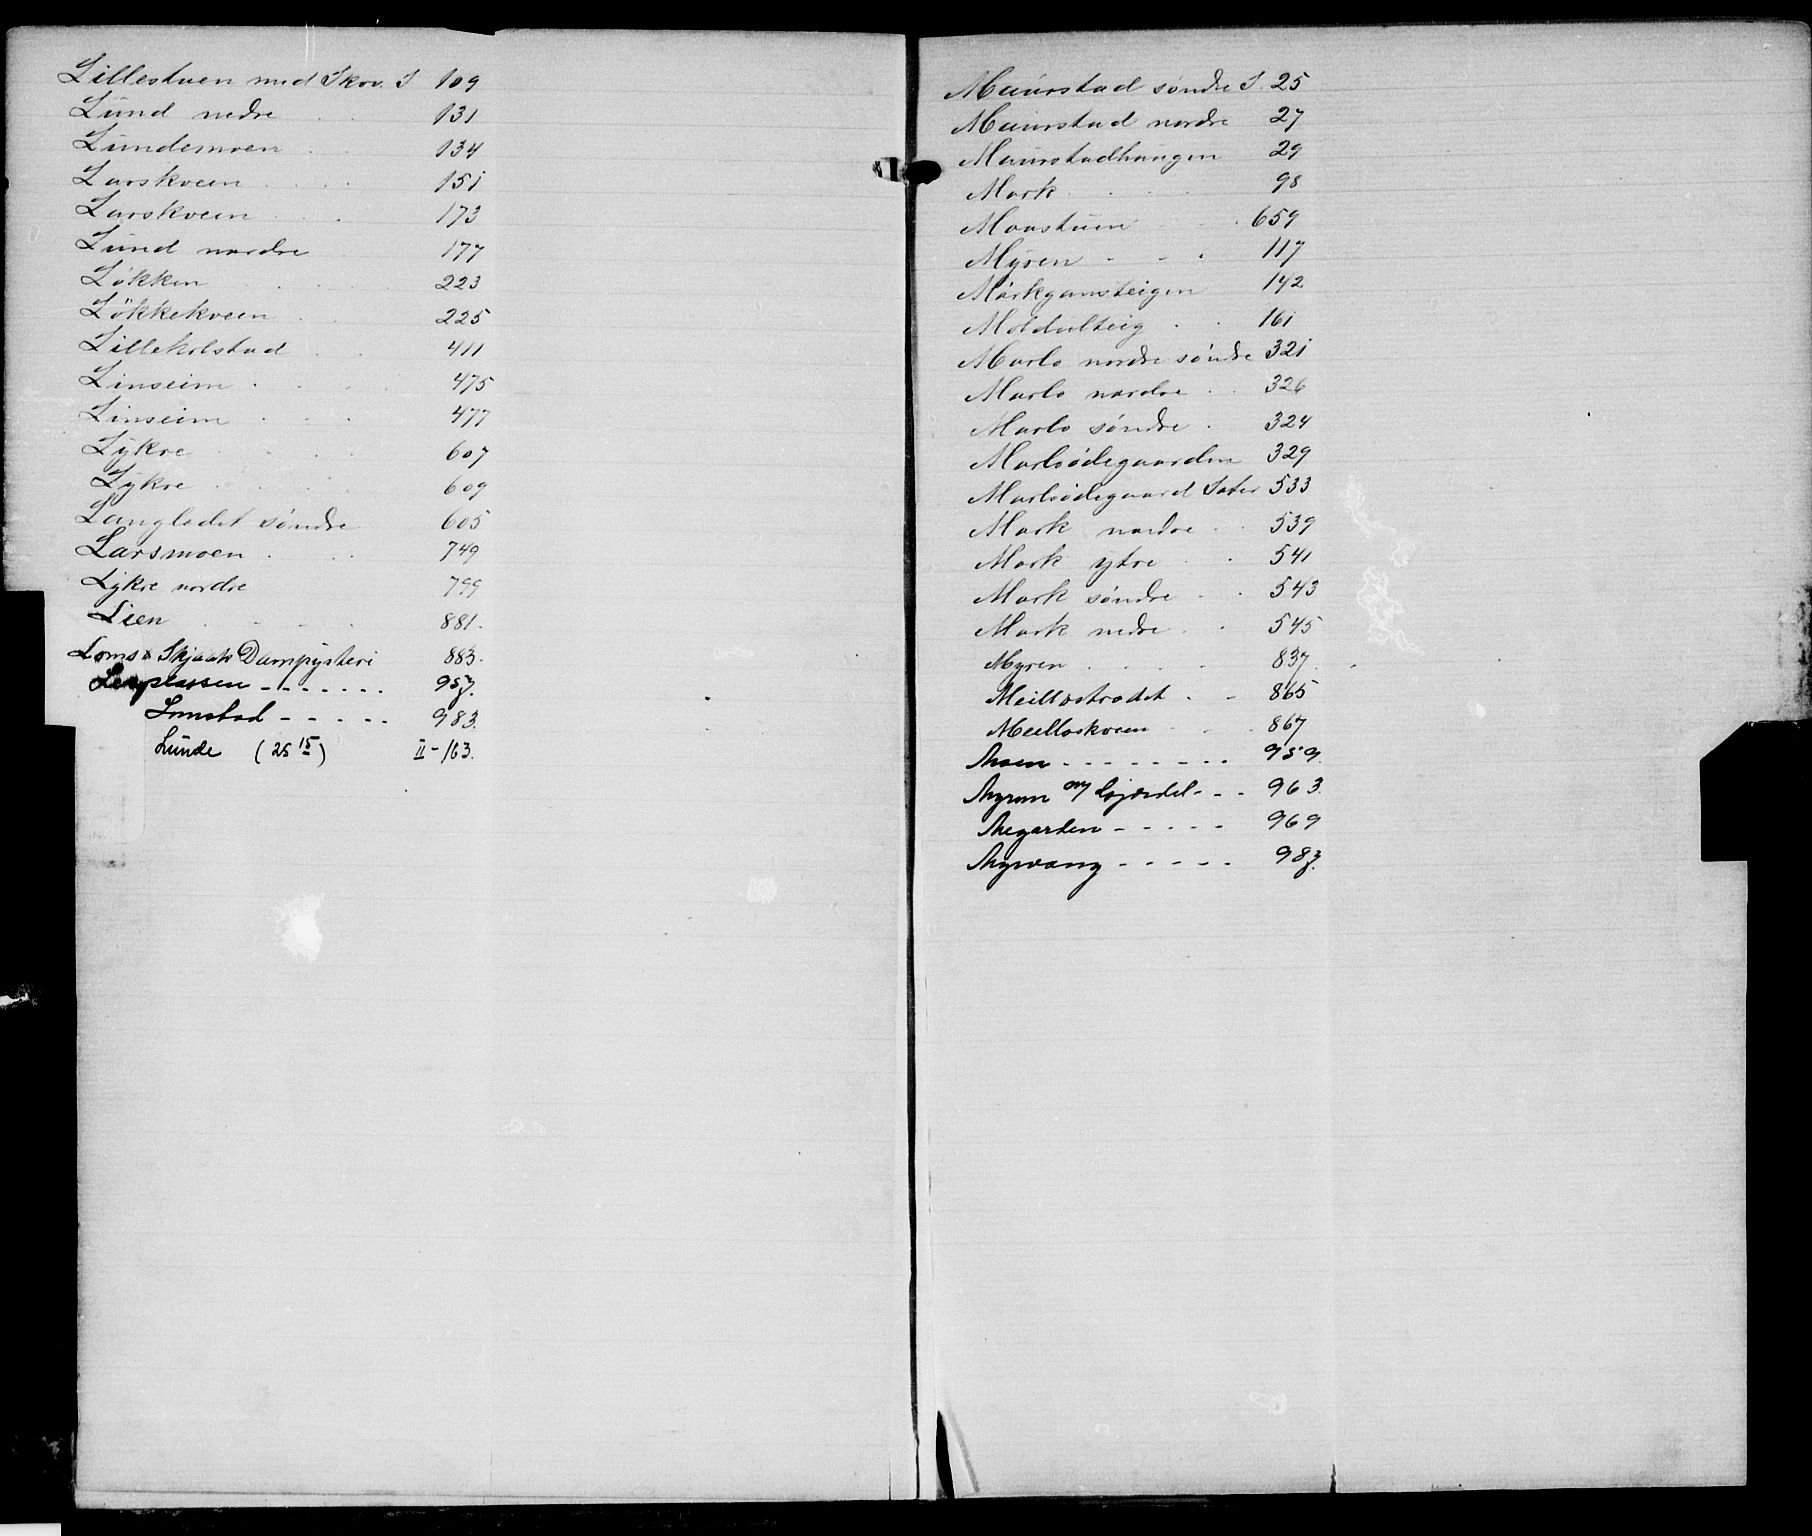 Lillestuen med Skov. S 109
Lund nedre . . 131
Lundemoen . . 134
Larskveen . . . 151
Larskveen . . . 173
Lund nordre . 177
Løkken . . . 223
Løkkekveen . . 225
Lillekolstad . . 411
Linseim . . . 475
Linseim . . . 477
Lykre . . . 607
Lykre . . . 609
Langledet søndre 605
Larsmoen . . . 749
Lykre nordre 799
Lien . . . . 881.
Loms & Skjaak Dampysteri 883.
plassen - - - - - - - 957.
Lomstad - - - - - 983.
Lunde (25 15) II - 163.
Maurstad søndre S. 25
Maurstad nordre 27
Maurstadhaugen 29
Mork . . . 98
Moastuen . . 659
Myren - - . 117
Mørkgamsteigen 142
Moldulteig . . 161
Marlo nordre søndre 321
Marlo nordre . . 326
Marlo søndre . 324
Marloødegaarden 329
Marloødegaard Sæter 533
Mork nordre . . 539
Mork ytre . . 541
Mork søndre . . 543
Mork nedre . . 545
Myren . . . . 837.
Meillostrødet . - 865
Meilloskveen . . 867
Moen - - - - - - - - 959.
Myrom - - - 963.
Megarden - - - - - 969
Myrvang - - - - - 987.